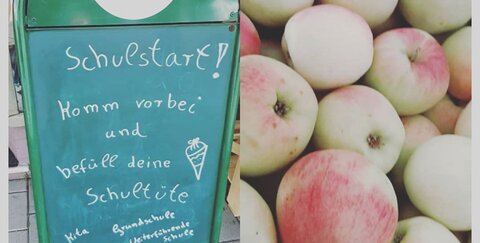 Schulstart!
Komm vorbei
und
befüll deine
Schultüte
Kita Grundschule
Weiterführende
Schule